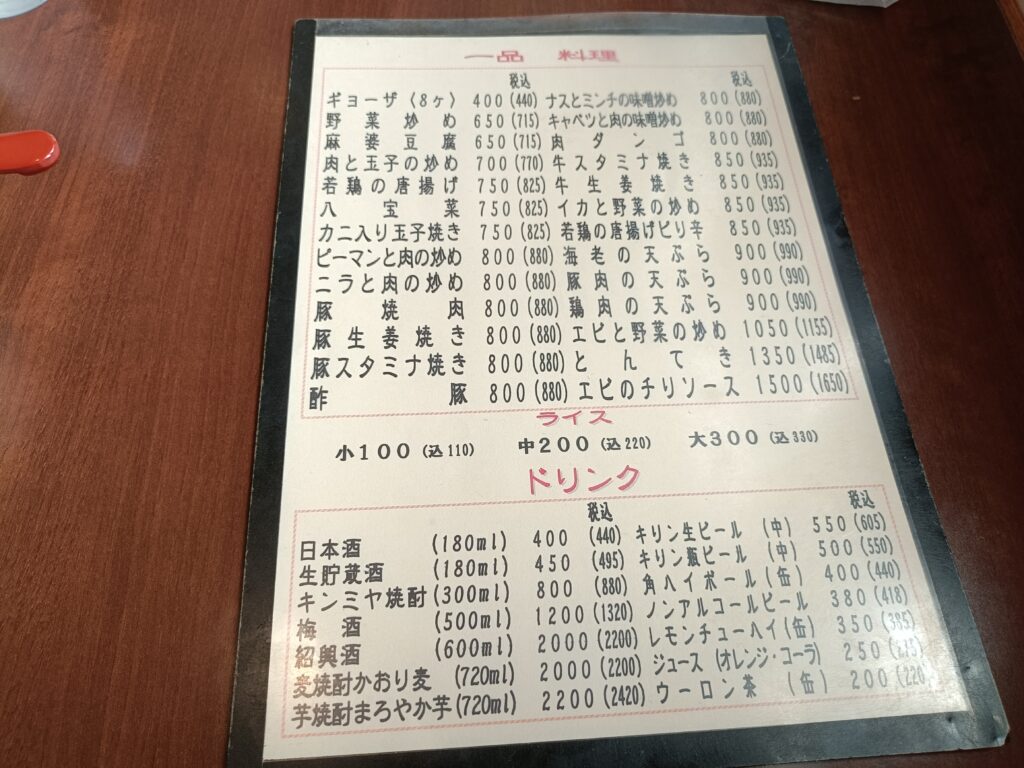 一品 料理
税込 税込
ギョーザ(8ヶ) 400(440) ナスとミンチの味噌炒め 800(880)
野菜炒め 650(715) キャベツと肉の味噌炒め 800(880)
麻婆豆腐 650(715) 肉ダンゴ 800(880)
肉と玉子の炒め 700(770) 牛スタミナ焼き 850(935)
若鶏の唐揚げ 750(825) 牛生姜焼き 850(935)
八宝菜 750(825) イカと野菜の炒め 850(935)
カニ入り玉子焼き 750(825) 若鶏の唐揚げピリ辛 850(935)
ピーマンと肉の炒め 800(880) 海老の天ぷら 900(990)
ニラと肉の炒め 800(880) 豚肉の天ぷら 900(990)
豚焼肉 800(880) 鶏肉の天ぷら 900(990)
豚生姜焼き 800(880) エビと野菜の炒め 1050(1155)
豚スタミナ焼き 800(880) とんてき 1350(1485)
酢豚 800(880) エビのチリソース 1500(1650)
ライス
小100(込110) 中200(込220) 大300(込330)
ドリンク
税込 税込
日本酒 (180ml) 400 (440) キリン生ビール (中) 550(605)
生貯蔵酒 (180ml) 450 (495) キリン瓶ビール (中) 500(550)
キンミヤ焼酎(300ml) 800 (880) 角ハイボール(缶) 400(440)
梅酒 (500ml) 1200(1320) ノンアルコールビール 380(418)
紹興酒 (600ml) 2000(2200) レモンチューハイ(缶) 350(385)
麦焼酎かおり麦 (720ml) 2000(2200) ジュース (オレンジ・コーラ) 250(275)
芋焼酎まろやか芋(720ml) 2200(2420) ウーロン茶 (缶) 200(220